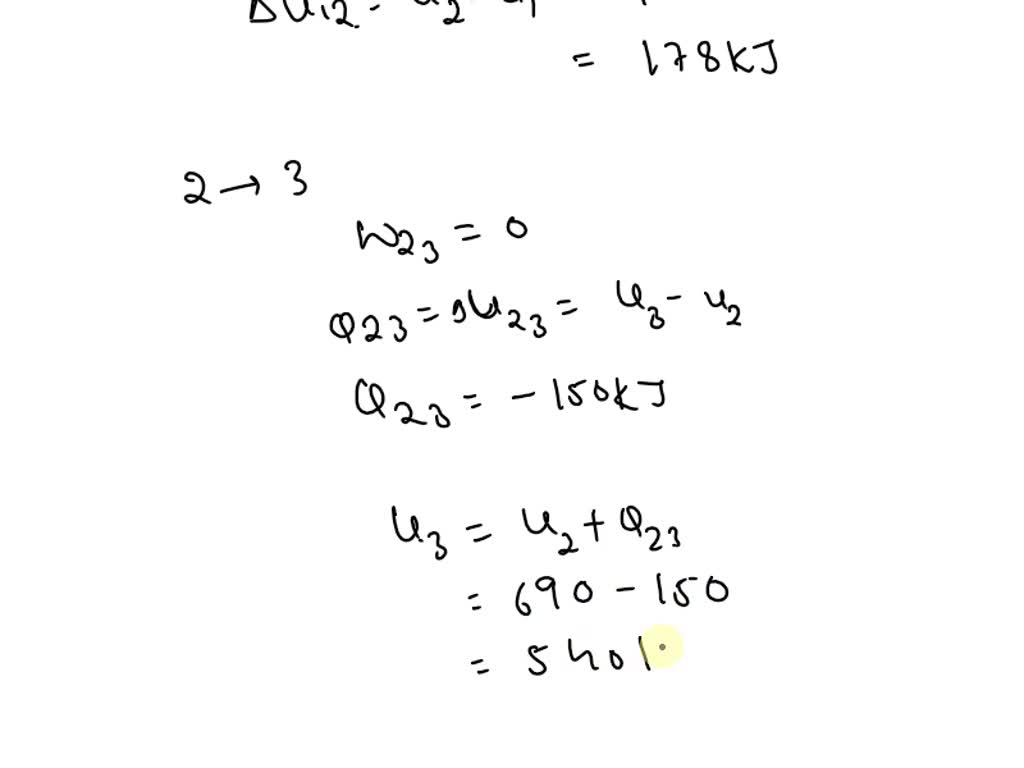 ΔU12 = U2 - U1
= 178KJ
2 → 3
W23 = 0
Q23 = ΔU23 = U3 - U2
Q23 = - 150KJ
U3 = U2 + Q23
= 690 - 150
= 540